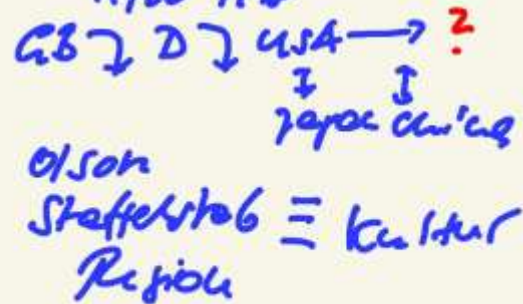 GB D USA → ?
Japan China
Olson
Staffelstab ≡ Kultur
Region